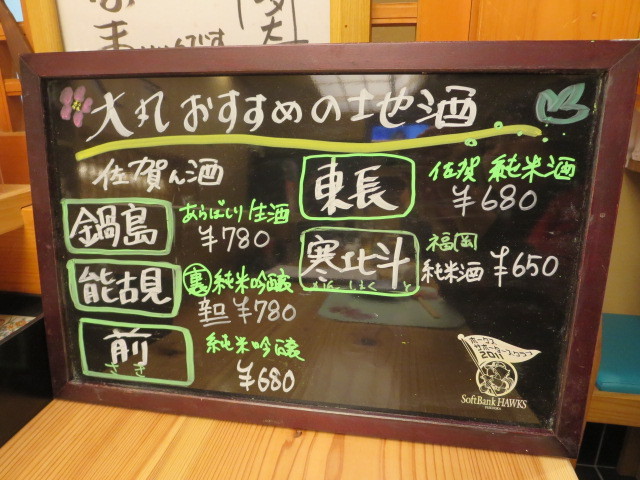 大丸おすすめの地酒
佐賀ん酒
鍋島
あらばしり生酒
¥780
能古見
裏 純米吟醸
辛口 ¥780
前
さき
純米吟醸
¥680
東長
佐賀 純米酒
¥680
寒北斗
福岡
純米酒 ¥650
ホークス
サポーターズクラブ
2011
SoftBank HAWKS
です